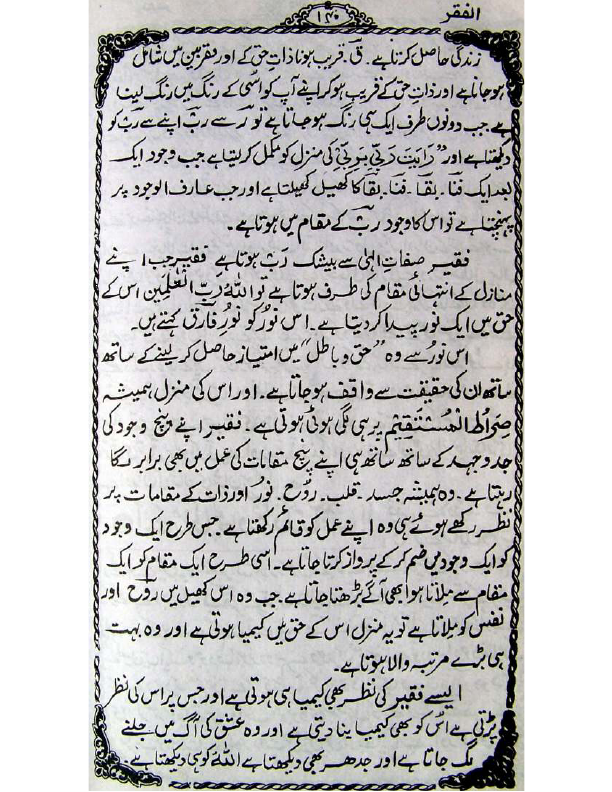 الفقر
۱۴۰
زندگی حاصل کرتا ہے۔ ق۔ قریب ہونا ذاتِ حق کے اور فقر بین میں شامل
ہو جاتا ہے اور ذاتِ حق کے قریب ہو کر اپنے آپ کو اسُی کے رنگ میں رنگ لیتا
ہے جب دونوں طرف ایک ہی رنگ ہو جاتا ہے تو رَ سے ربّ اپنے سے ربّ کو
دیکھتا ہے اور "رَایتَ رَبّیِ بِرَبِّیْ" کی منزل کو مکمل کر لیتا ہے جب وجود ایک
بعد ایک فنَا۔ بقَا۔ فنَا۔ بقَا کا کھیل کھیلتا ہے اور جب عارف الوجود پر
پہنچتا ہے تو اسُ کا وجود ربّ کے مقام میں ہوتا ہے۔
فقیر صفاتِ الہیٰ سے بیشک رَبّ ہوتا ہے فقیر جب اپنے
منازل کے انتہائی مقام کی طرف ہوتا ہے تو اللّٰہُ رَبِّ الْعٰلَمِین اس کے
حق میں ایک نور پیدا کر دیتا ہے۔ اس نورُ کو نورُ فارق کہتے ہیں۔
اس نورُ سے وہ "حق و باطل" میں امتیاز حاصل کر لینے کے ساتھ
ساتھ ان کی حقیقت سے واقف ہو جاتا ہے۔ اور اس کی منزل ہمیشہ
صِرَاطَ الْمُسْتَقِیْمِ پر ہی لگی ہوئی ہوتی ہے۔ فقیر اپنے پنج وجود کی
جدوجہد کے ساتھ ساتھ ہی اپنے پنج مقامات کی عمل میں بھی برابر لگا
رہتا ہے۔ وہ ہمیشہ جسد۔ قلب۔ روُح۔ نورُ اور ذات کے مقامات پر
نظر رکھے ہوئے ہی وہ اپنے عمل کو قائم رکھتا ہے۔ جس طرح ایک وجود
کو ایک وجود میں ضم کر کے پرواز کرتا جاتا ہے۔ اسی طرح ایک مقام کو ایک
مقام سے مِلاتا ہوا بھی آگے بڑھتا جاتا ہے جب وہ اس کھیل میں روُح اور
نفس کو مِلاتا ہے تو یہ منزل اس کے حق میں کیمیا ہوتی ہے اور وہ بہت
ہی بڑے مرتبہ والا ہوتا ہے۔
ایسے فقیر کی نظر بھی کیمیا ہی ہوتی ہے اور جس پر اس کی نظر
پڑتی ہے اسُ کو بھی کیمیا بنا دیتی ہے اور وہ عشق کی آگ میں جلنے
لگ جاتا ہے اور جدھر بھی دیکھتا ہے اللّٰہُ کو ہی دیکھتا ہے۔